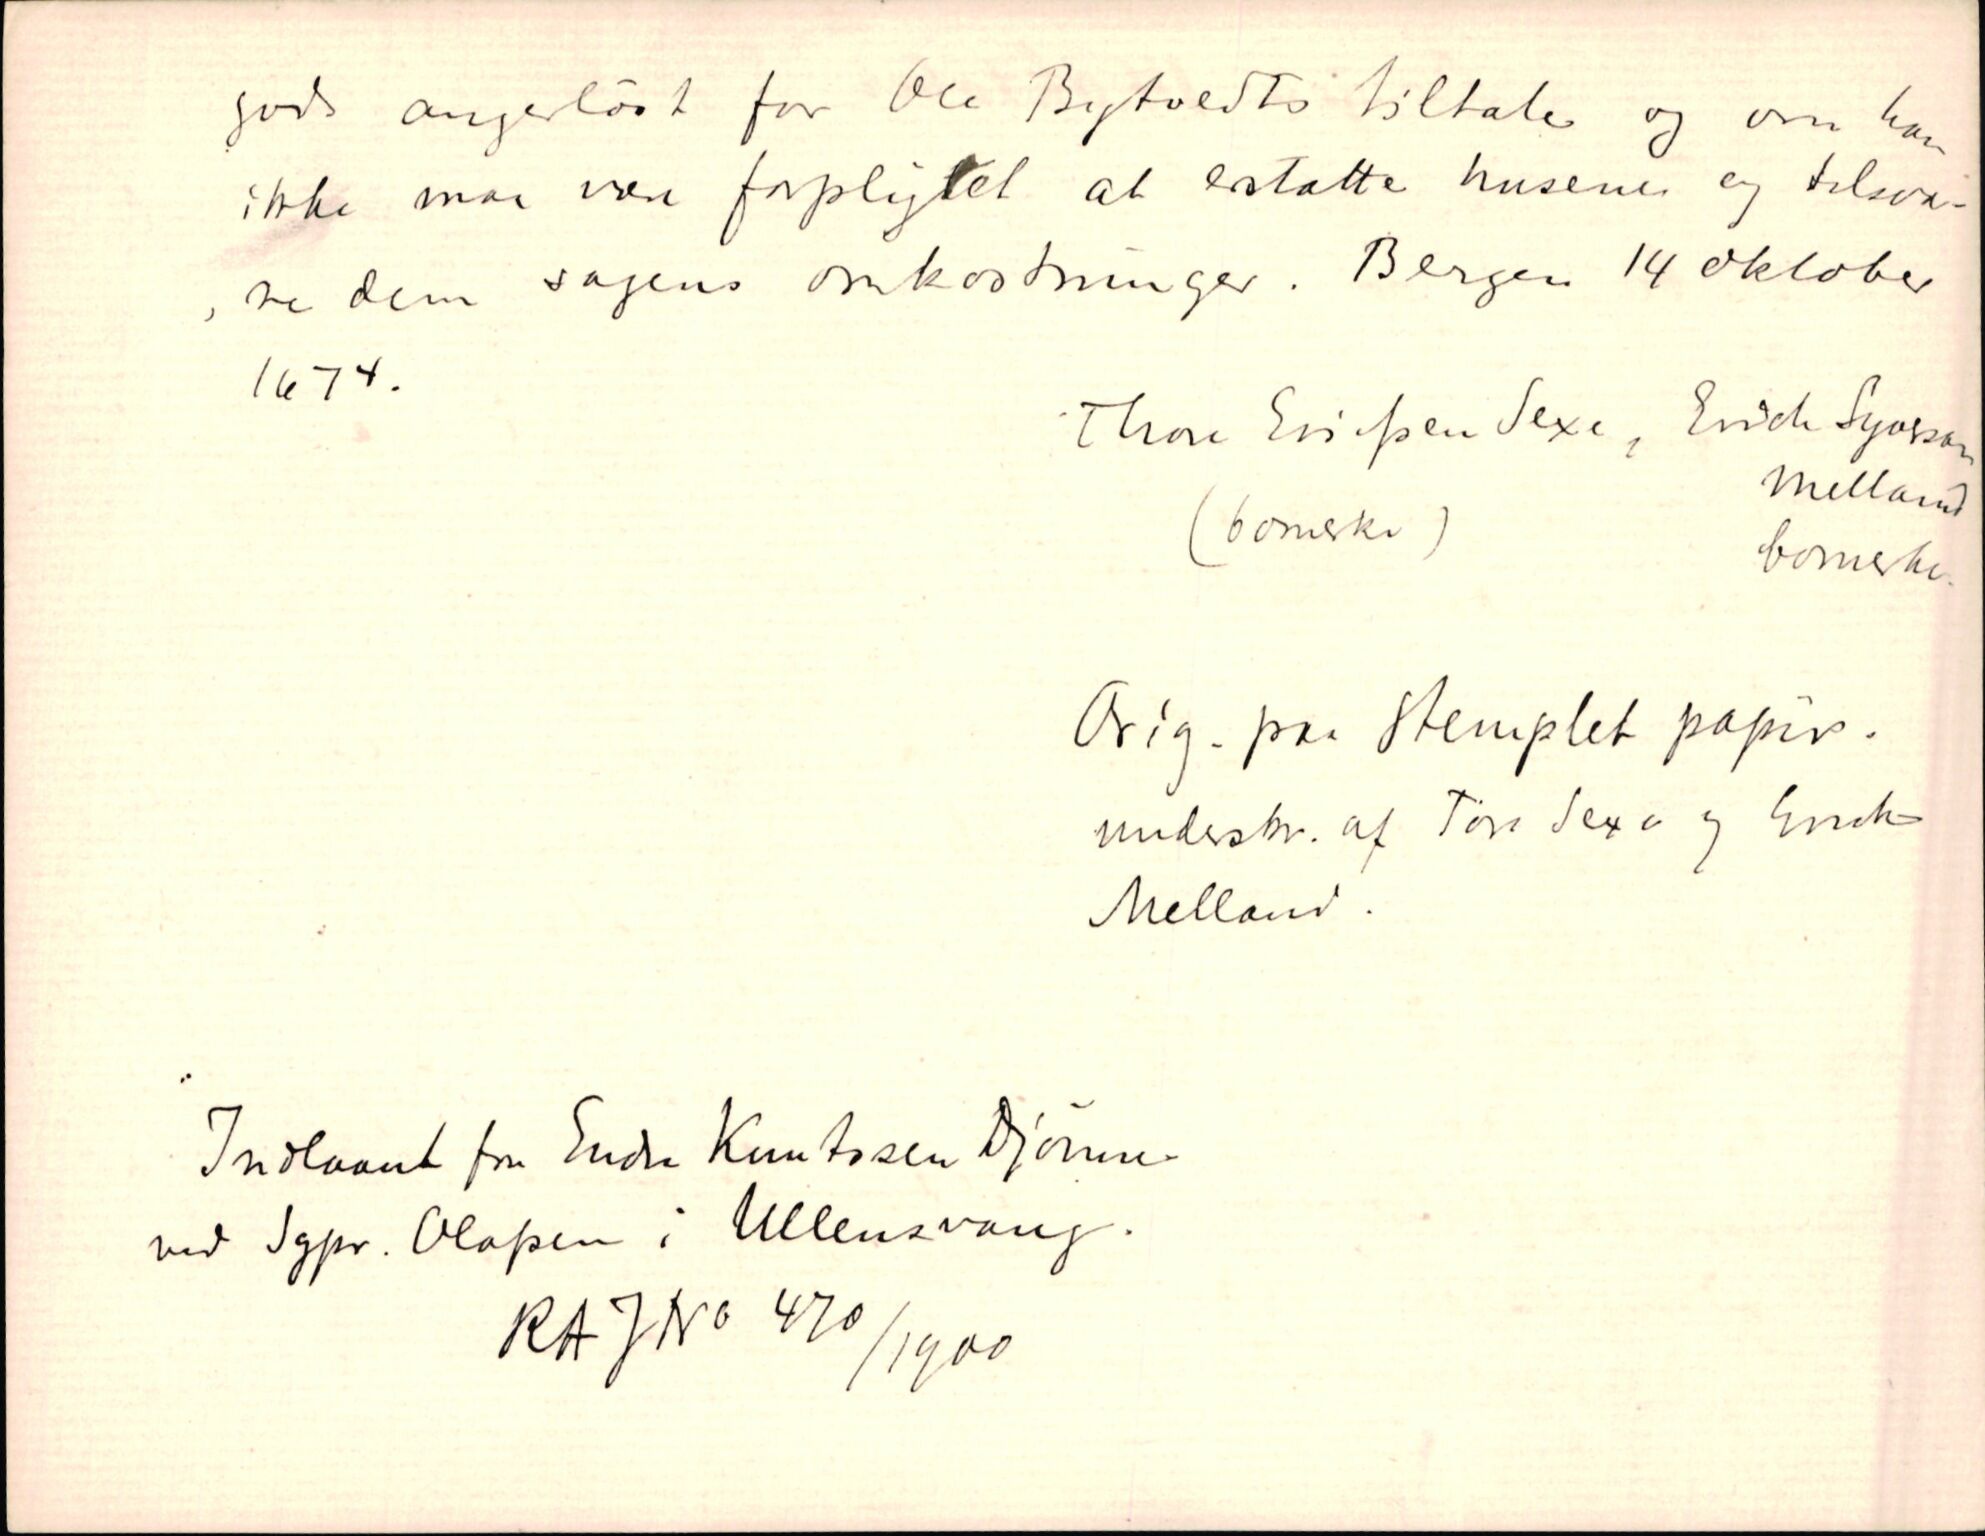 gods angerløst for Ole Bytvedts tiltale og om han
ikke maa være forpligtet at erstatte husene og tilsva-
re dem sagens omkostninger. Bergen 14 oktober
1674.
Thore Erichsen Sexe, Erich Syversøn
Melland
(bomerke)
bomerke.
Orig. paa stemplet papir.
underskr. af Tore Sexe og Erich
Melland.
Indlaant fra Endre Knutssen Djönne
ved Sgpr. Olafsen i Ullensvang.
RA J No 470/1900